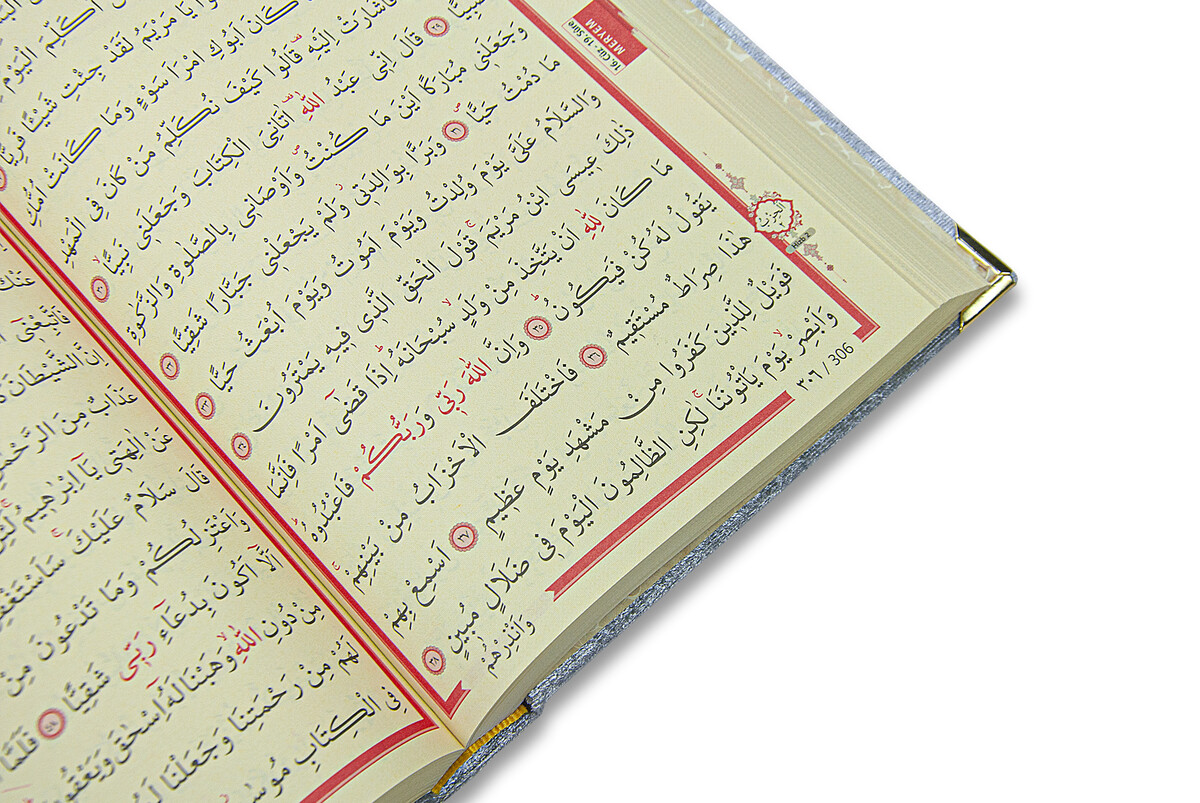 16. Cüz - 19. Sûre
MERYEM
اُكَلِّمَ الْيَوْمَ
يَا مَرْيَمُ لَقَدْ جِئْتِ شَيْـًٔا فَرِيًّا
كَانَ اَبُوكِ امْرَاَ سَوْءٍ وَمَا كَانَتْ اُمُّكِ
فَاَشَارَتْ اِلَيْهِ قَالُوا كَيْفَ نُكَلِّمُ مَنْ كَانَ فِي الْمَهْدِ
صَبِيًّا ٢٩ قَالَ اِنّ۪ي عَبْدُ اللّٰهِ اٰتَانِيَ الْكِتَابَ وَجَعَلَن۪ي نَبِيًّا ٣٠
وَجَعَلَن۪ي مُبَارَكًا اَيْنَ مَا كُنْتُ وَاَوْصَان۪ي بِالصَّلٰوةِ وَالزَّكٰوةِ
مَا دُمْتُ حَيًّا ٣١ وَبَرًّا بِوَالِدَت۪ي وَلَمْ يَجْعَلْن۪ي جَبَّارًا شَقِيًّا ٣٢
وَالسَّلَامُ عَلَيَّ يَوْمَ وُلِدْتُ وَيَوْمَ اَمُوتُ وَيَوْمَ اُبْعَثُ حَيًّا ٣٣
ذٰلِكَ ع۪يسَى ابْنُ مَرْيَمَ قَوْلَ الْحَقِّ الَّذ۪ي ف۪يهِ يَمْتَرُونَ ٣٤
مَا كَانَ لِلّٰهِ اَنْ يَتَّخِذَ مِنْ وَلَدٍ سُبْحَانَهُ اِذَا قَضٰٓى اَمْرًا فَاِنَّمَا
يَقُولُ لَهُ كُنْ فَيَكُونُ ٣٥ وَاِنَّ اللّٰهَ رَبّ۪ي وَرَبُّكُمْ فَاعْبُدُوهُ
هٰذَا صِرَاطٌ مُسْتَق۪يمٌ ٣٦ فَاخْتَلَفَ الْاَحْزَابُ مِنْ بَيْنِهِمْ
فَوَيْلٌ لِلَّذ۪ينَ كَفَرُوا مِنْ مَشْهَدِ يَوْمٍ عَظ۪يمٍ ٣٧ اَسْمِعْ بِهِمْ
وَاَبْصِرْ يَوْمَ يَأْتُونَنَا لٰكِنِ الظَّالِمُونَ الْيَوْمَ ف۪ي ضَلَالٍ مُب۪ينٍ ٣٨
وَاَنْذِرْهُمْ
الحزب
Hizb 2
٣٠٦ / 306
فَاتَّبِعْن۪ٓي
اِنَّ الشَّيْطَانَ
عَذَابٌ مِنَ الرَّحْمٰنِ
عَنْ اٰلِهَت۪ي يَٓا اِبْرٰه۪يمُ
قَالَ سَلَامٌ عَلَيْكَ سَاَسْتَغْفِرُ
وَاَعْتَزِلُكُمْ وَمَا تَدْعُونَ مِنْ
اَلَّٓا اَكُونَ بِدُعَٓاءِ رَبّ۪ي شَقِيًّا ٤٨ فَلَمَّا
مِنْ دُونِ اللّٰهِ وَهَبْنَا لَهُٓ اِسْحٰقَ وَيَعْقُوبَ
لَهُمْ مِنْ رَحْمَتِنَا وَجَعَلْنَا
فِي الْكِتَابِ